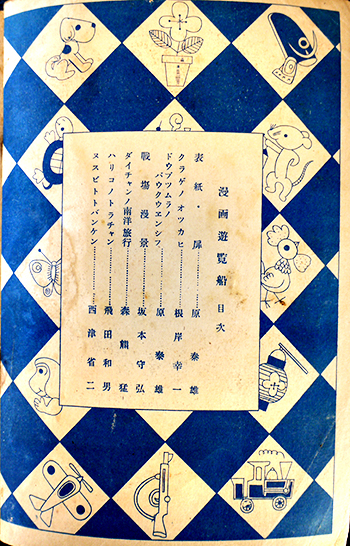 漫画遊覧船 目次
表紙・扉………原 泰雄
クラゲノオツカヒ………根岸幸一
ドウブツムラノ
バウクウエンシフ………原 泰雄
戰場漫景………坂本守弘
ダイチャンノ南洋旅行………森熊 猛
ハリコノトラチャン………飛田和男
ヌスビトトバンケン………西津省二